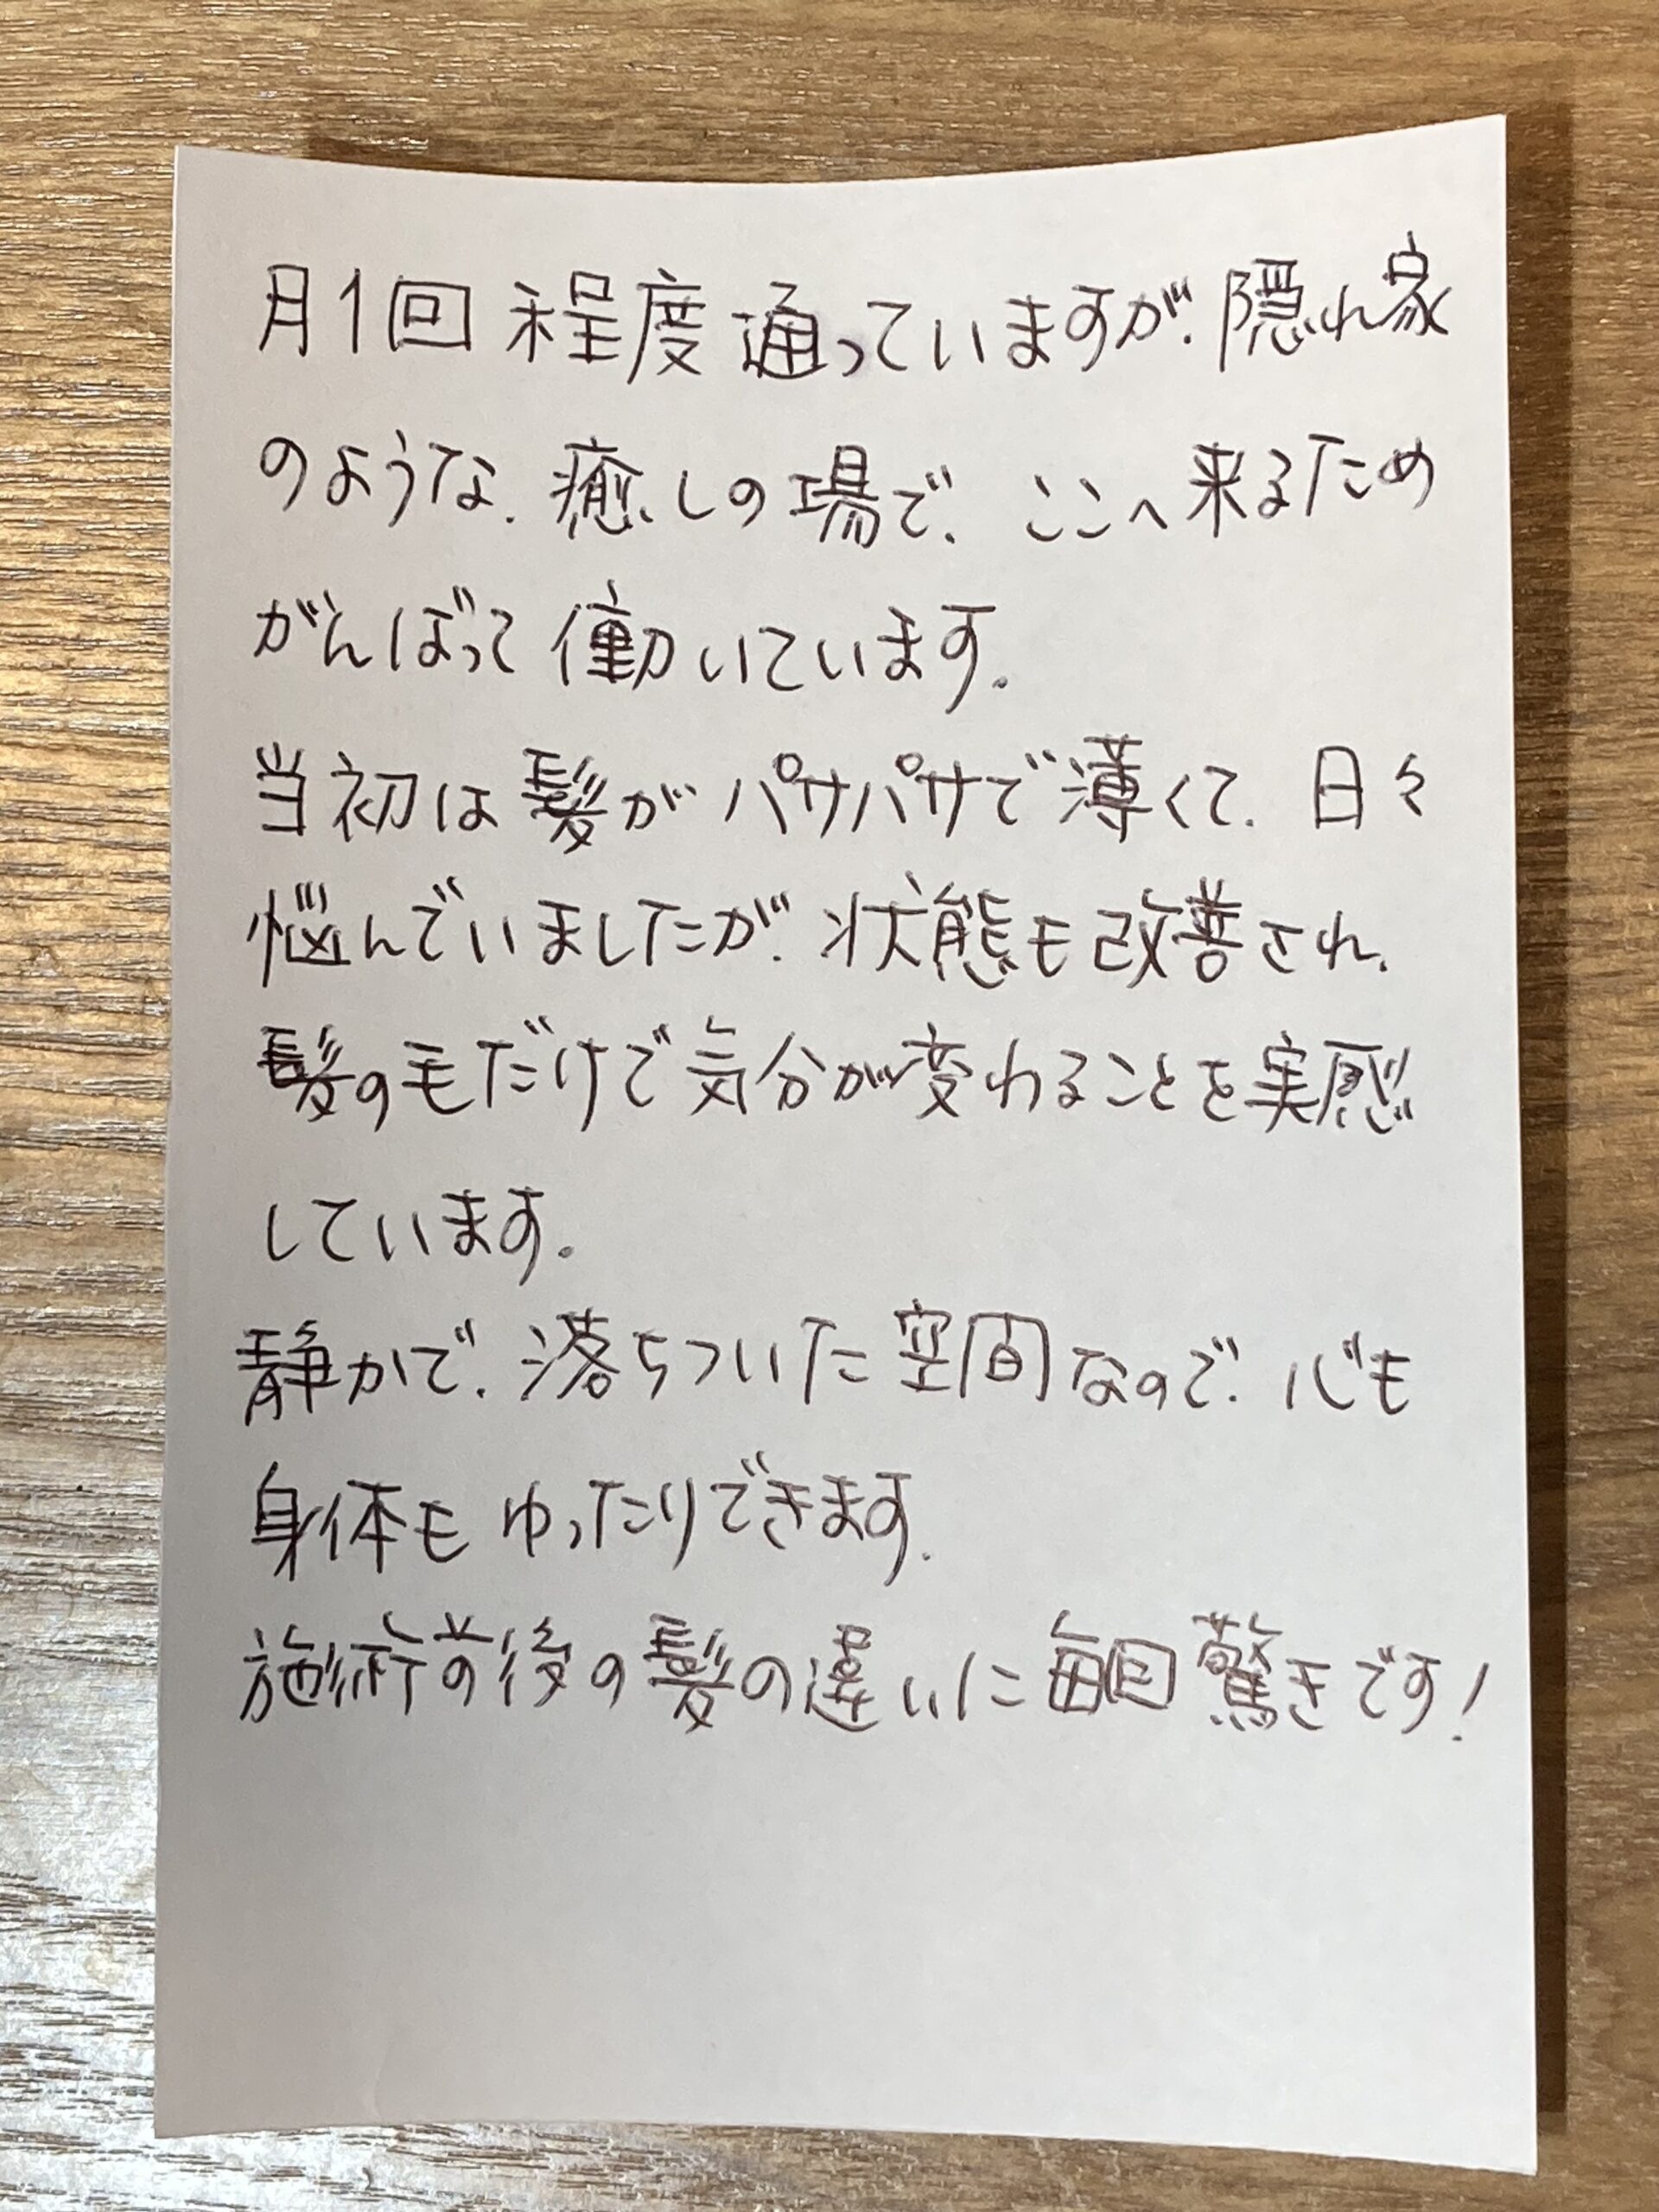 月1回程度通っていますが、隠れ家
のような、癒しの場で、ここへ来るため
がんばって働いています。
当初は髪がパサパサで薄くて、日々
悩んでいましたが、状態も改善され、
髪の毛だけで気分が変わることを実感
しています。
静かで、落ちついた空間なので、心も
身体もゆったりできます。
施術前後の髪の違いに毎回驚きです!